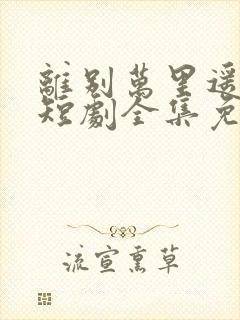 離别萬里遥
短劇全集免
流宣熏草